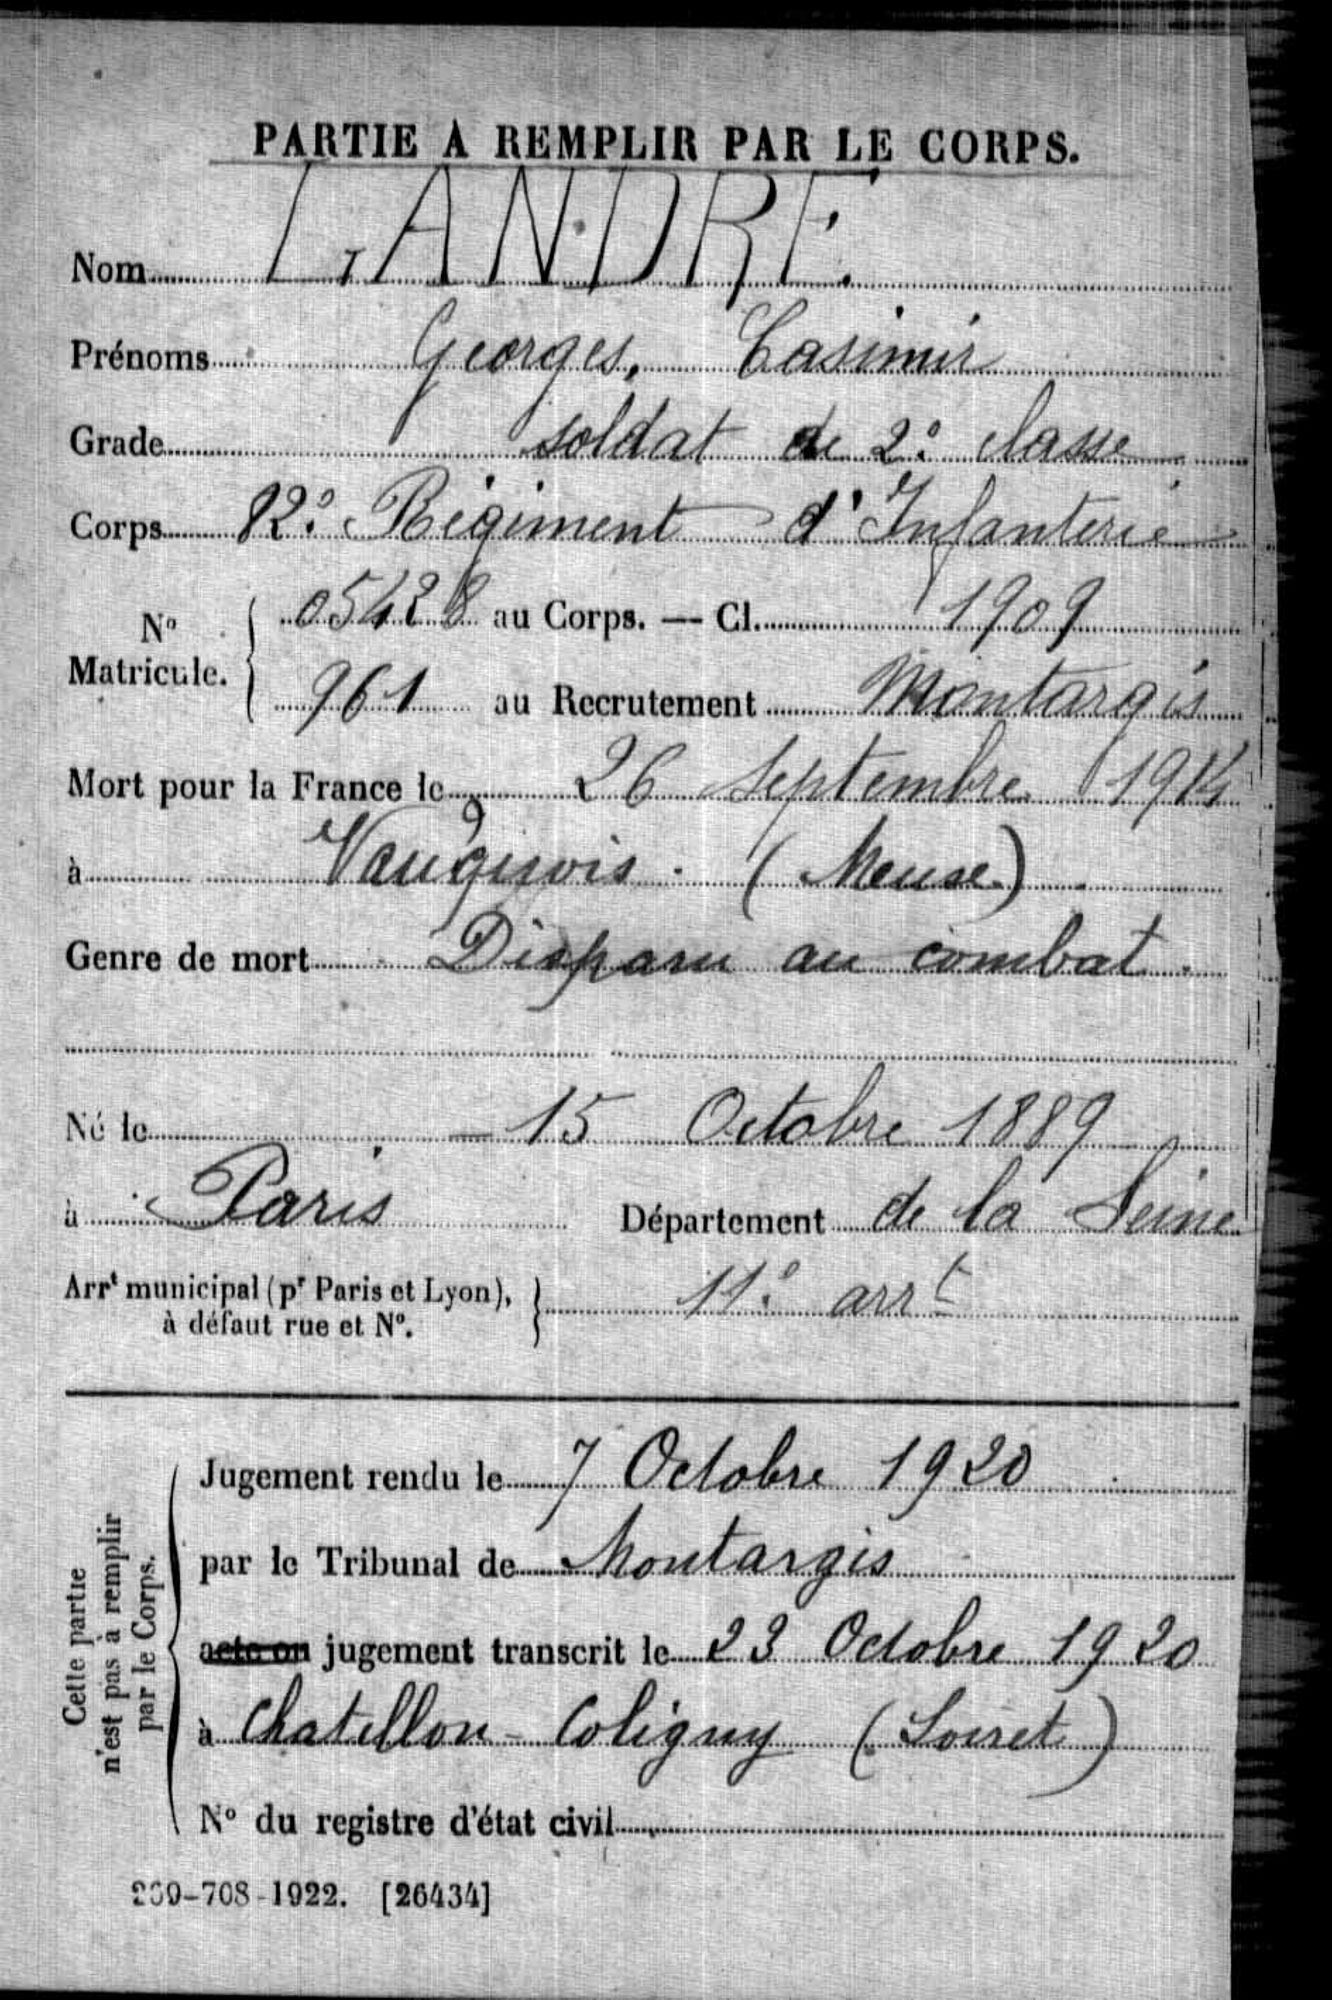 PARTIE A REMPLIR PAR LE CORPS.
Nom LANDRE.
Prénoms Georges, Casimir
Grade soldat de 2e classe
Corps 82e Régiment d'Infanterie
No Matricule. { 05428 au Corps. — Cl. 1909
961 au Recrutement Montargis
Mort pour la France le 26 Septembre 1914
à Vauquois. (Meuse)
Genre de mort Disparu au combat.
Né le 15 Octobre 1889
à Paris Département de la Seine
Arrt municipal (pr Paris et Lyon), à défaut rue et No. } 11e arrt
Cette partie n'est pas à remplir par le Corps.
Jugement rendu le 7 Octobre 1920
par le Tribunal de Montargis
acte ou jugement transcrit le 23 Octobre 1920
à Chatillon-Coligny (Loiret)
No du registre d'état civil
269-708-1922. [26434]